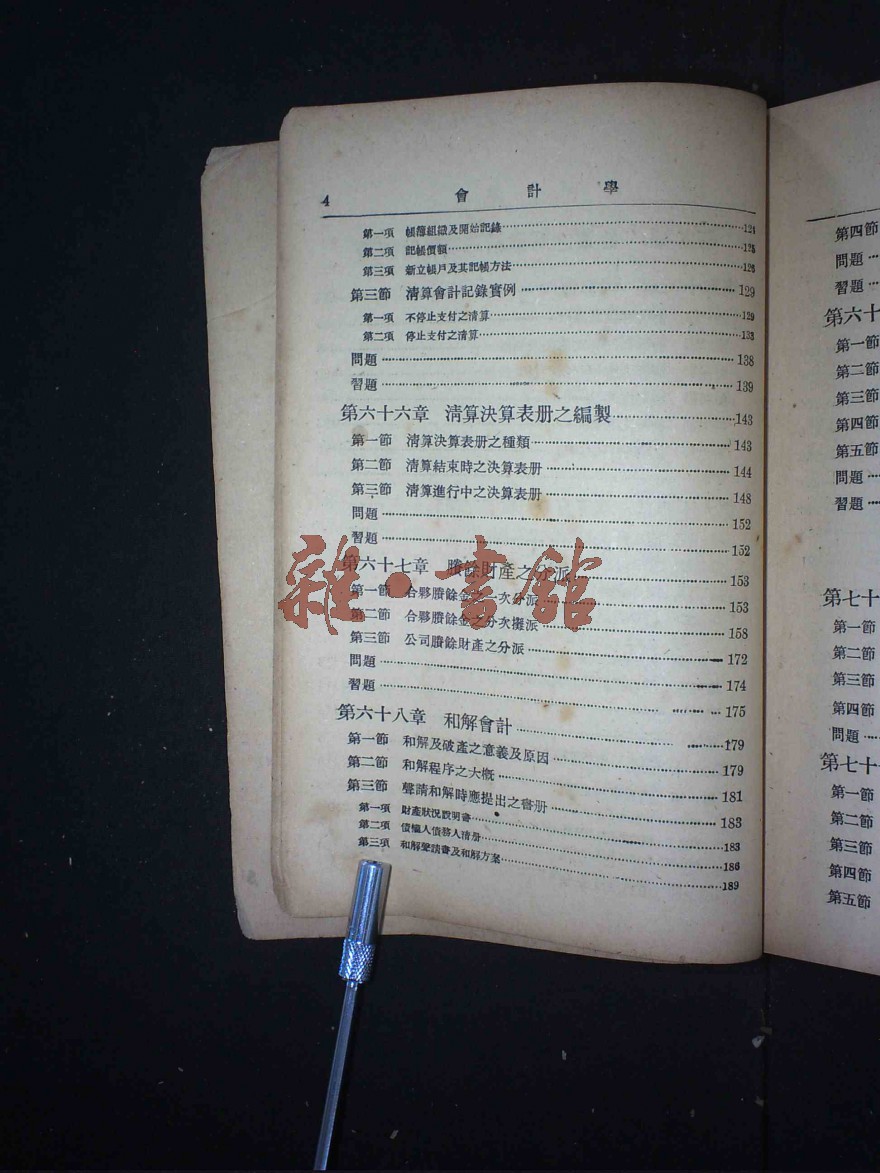 4 會 計 學
第一項 帳簿組織及開始記錄 124
第二項 記帳價額 125
第三項 新立帳戶及其記帳方法 126
第三節 淸算會計記錄實例 129
第一項 不停止支付之淸算 129
第二項 停止支付之淸算 133
問題 138
習題 139
第六十六章 淸算決算表册之編製 143
第一節 淸算決算表册之種類 143
第二節 淸算結束時之決算表册 144
第三節 淸算進行中之決算表册 148
問題 152
習題 152
第六十七章 賸餘財產之分派 153
第一節 合夥賸餘金之一次分派 153
第二節 合夥賸餘金之分次攤派 158
第三節 公司賸餘財產之分派 172
問題 174
習題 175
第六十八章 和解會計 179
第一節 和解及破產之意義及原因 179
第二節 和解程序之大槪 181
第三節 聲請和解時應提出之書册 183
第一項 財產狀況說明書 183
第二項 債權人債務人淸册 186
第三項 和解聲請書及和解方案 189
雜·書館
第四節
問題
習題
第六十
第一節
第二節
第三節
第四節
第五節
問題
習題
第七十
第一節
第二節
第三節
第四節
問題
第七十
第一節
第二節
第三節
第四節
第五節